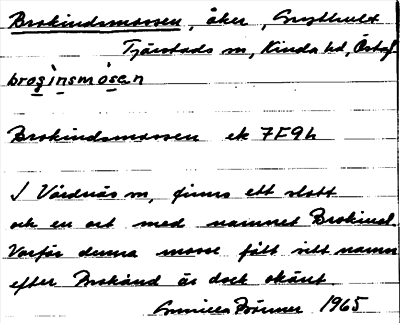 Brokindsmossen, åker, Grythult
Tjärstads sn, Kinda hd, Östg
broginsmåsen
Brokindsmossen ek 7F9h
I Vårdnäs sn, finns ett slott
och en ort med namnet Brokind.
Varför denna mosse fått sitt namn
efter Brokind är dock okänt.
Gunilla 1965